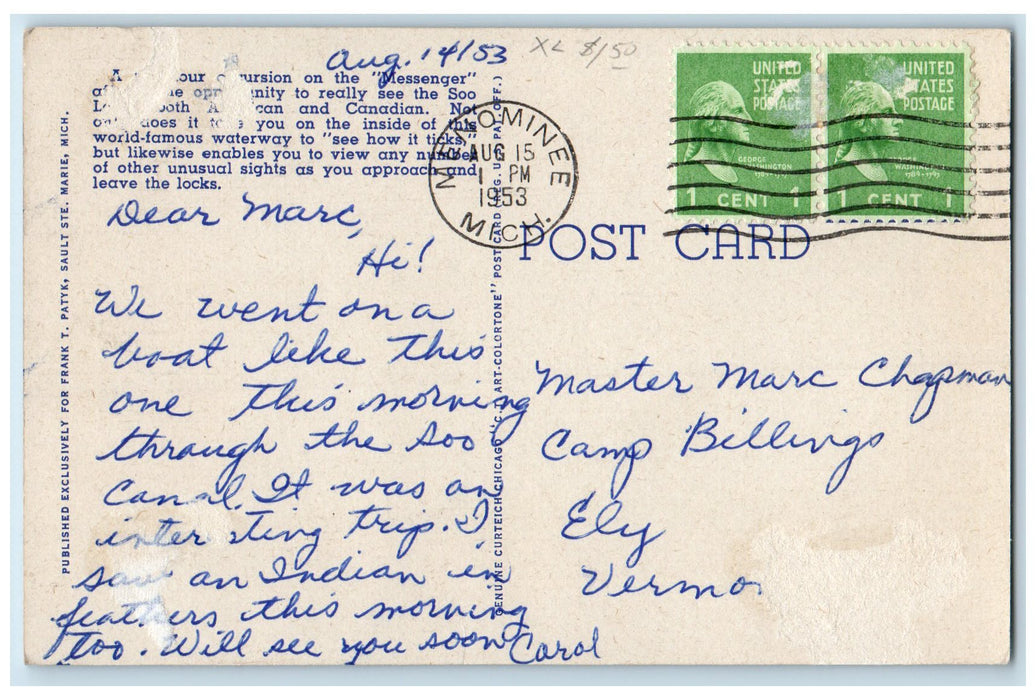 Aug. 14/53
XL $/50
A our excursion on the "Messenger"
the opportunity to really see the Soo
both American and Canadian. Not
does it take you on the inside of this
world-famous waterway to "see how it ticks,"
but likewise enables you to view any number
of other unusual sights as you approach and
leave the locks.
PUBLISHED EXCLUSIVELY FOR FRANK T. PATYK, SAULT STE. MARIE, MICH.
Dear Marc,
Hi!
We went on a
boat like this
one this morning
through the Soo
Canal. It was an
interesting trip. I
saw an Indian in
feathers this morning
too. Will see you soon
Carol
GENUINE CURTEICH-CHICAGO "C.T. ART-COLORTONE" POST CARD (REG. U.S. PAT. OFF.)
MENOMINEE
AUG 15
1 PM
1953
MICH.
UNITED
STATES
POSTAGE
GEORGE
WASHINGTON
1789-1797
1 CENT 1
UNITED
STATES
POSTAGE
GEORGE
WASHINGTON
1789-1797
1 CENT 1
POST CARD
Master Marc Chapman
Camp Billings
Ely
Vermo